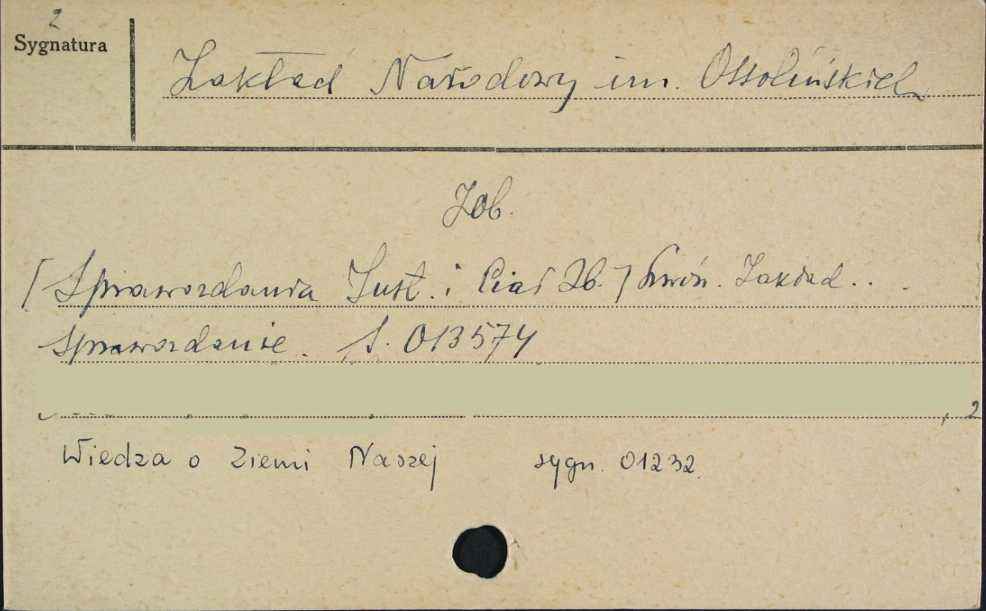 2
Sygnatura
Zakład Narodowy im. Ossolińskich
Zob.
[Sprawozdania Inst. i Ciał Zb.] Lwów. Zakład...
Sprawozdanie. S. 013574
Wiedza o Ziemi Naszej sygn. 01232.